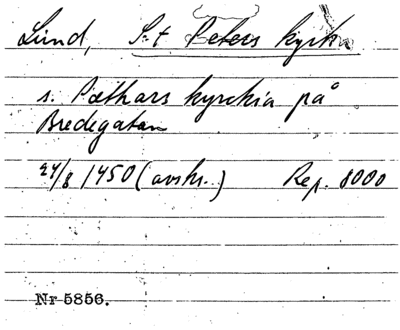 Lund, S:t Peters kyrka
s. Pæthars kyrckia på
Bredegatan
24/8 1450 (avskr.) Rep. 8000
Nr 5856.